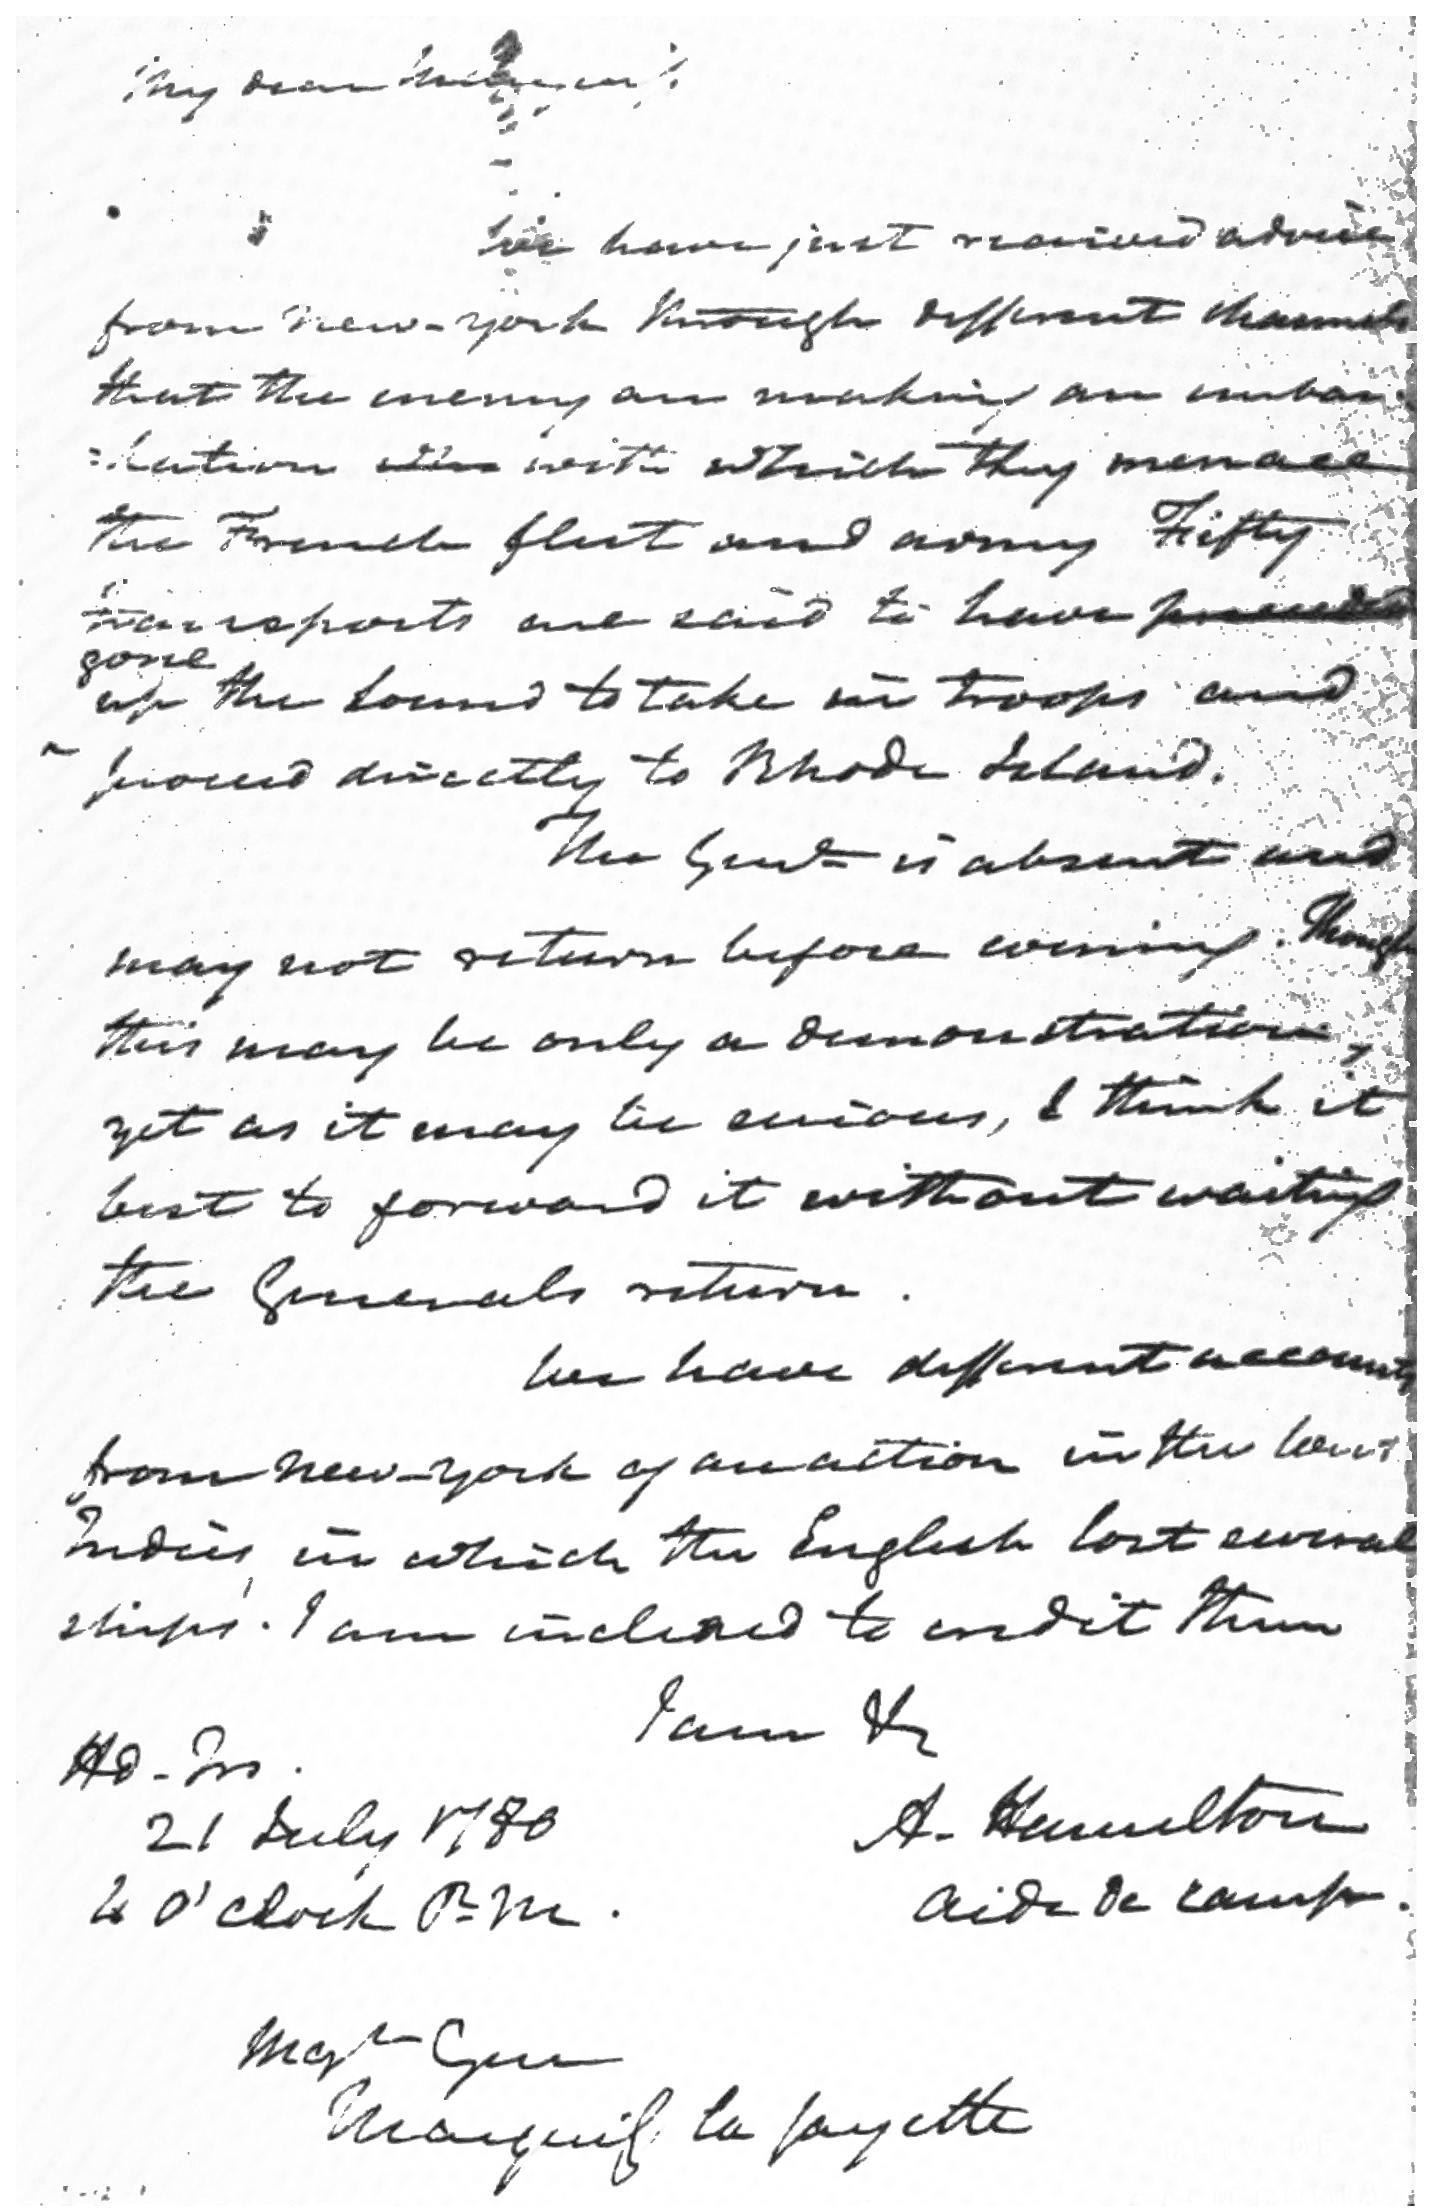 My dear Marquis
We have just received advice
from New-York through different channels
that the enemy are making an embar-
:kation with which they menace
the French fleet and army Fifty
transports are said to have
gone
up the Sound to take in troops and
proceed directly to Rhode Island.
The Genl is absent and
may not return before evening. Though
this may be only a demonstration,
yet as it may be serious, I think it
best to forward it without waiting
the Generals return.
We have different accounts
from New-York of an action in the West
Indies, in which the English lost several
ships. I am inclined to credit them
I am &c
Hd-Qrs.
21 July 1780
4 O'Clock P.M.
A. Hamilton
Aide De Camp.
Majr Gen
Marquiss la fayette